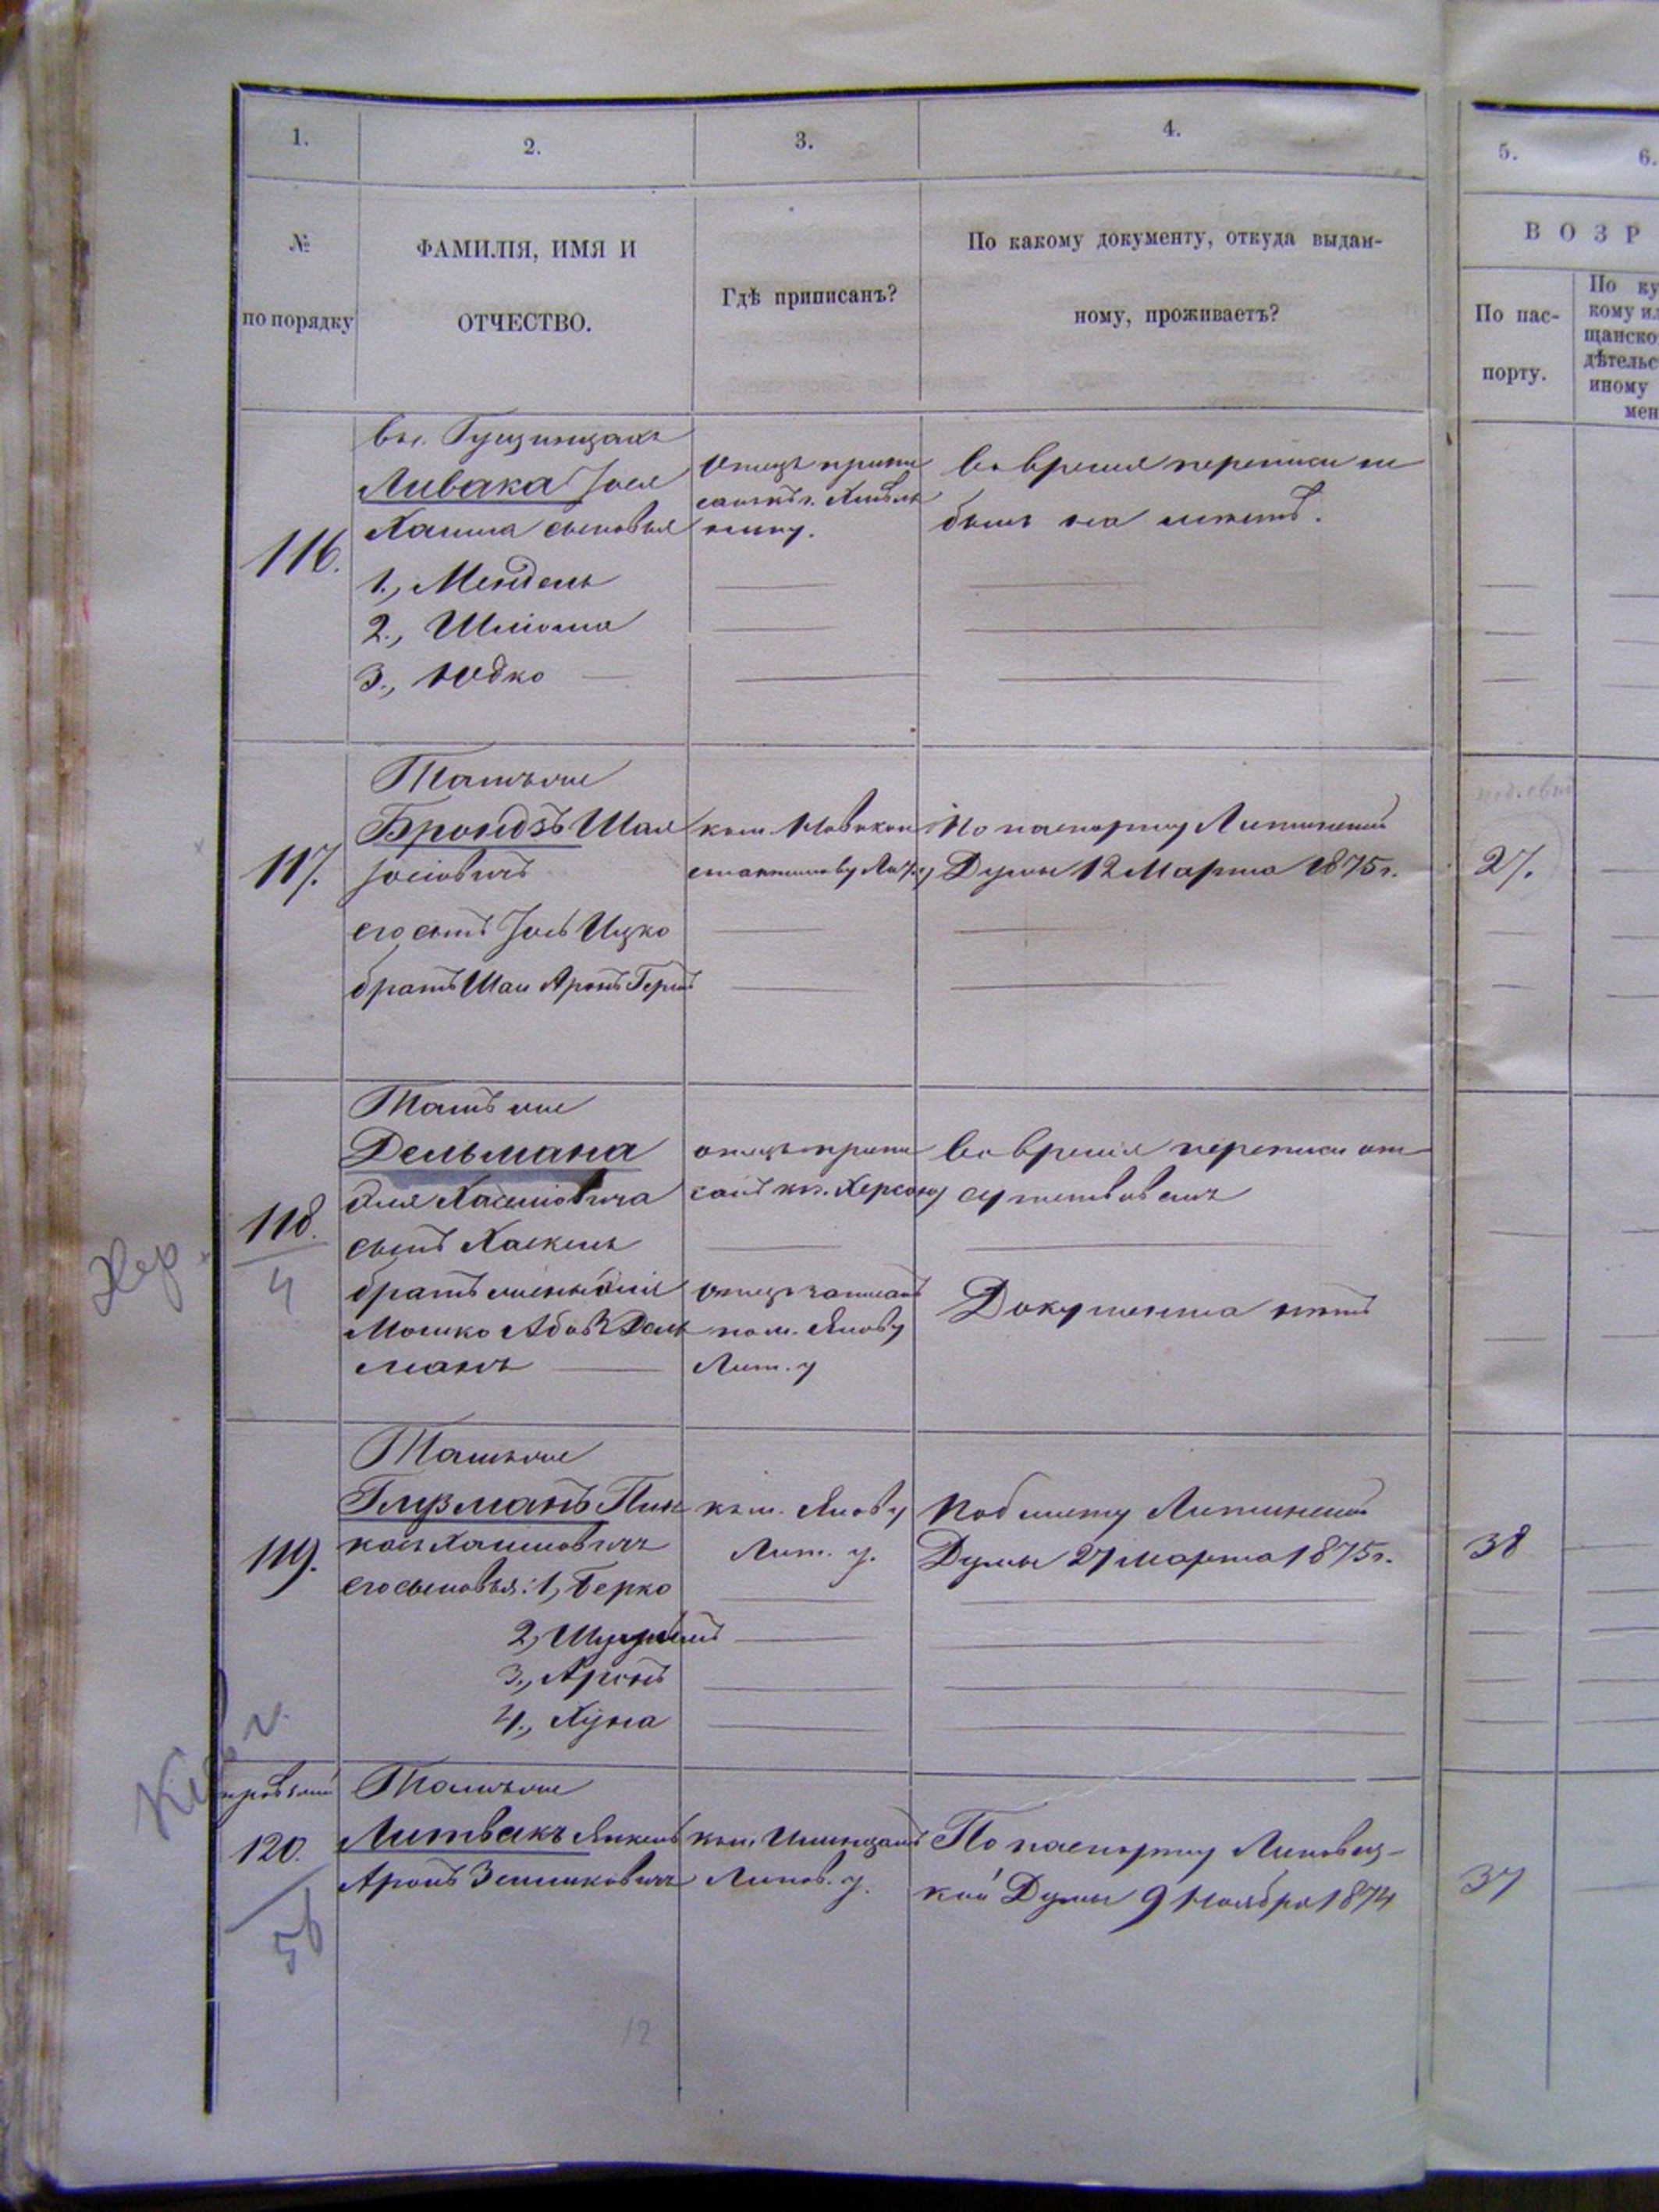 1.
2.
3.
4.
5.
6.
№
по порядку
ФАМИЛІЯ, ИМЯ И
ОТЧЕСТВО.
Гдѣ приписанъ?
По какому документу, откуда выдан-
ному, проживаетъ?
ВОЗР
По пас-
порту.
По ку
кому ил
щанско
дѣтельс
иному
мен
116.
въ. Гущинцахъ
Ливака Іося
Хаима сыновья
1., Мендель
2., Шліома
3., Юдко
Отецъ припи
санъ къ г. Хмѣль
нику.
Во время переписи не
былъ на мѣстѣ.
117.
Тамъ же
Брондзъ Шая
Іосіовичъ
его сынъ Іось Ицко
братъ Шаи Аронъ Гершъ
къ м. Новокон
стантинову Лит. у
По паспорту Литинской
Думы 12 Марта 1875 г.
27.
118.
4
Хер.
Тамъ же
Дельмана
сынъ Хаскель
братъ
Мошко Абовъ Дель
манъ
отецъ припи
санъ къ г. Херсону
отецъ записанъ
по м. Янову
Лит. у
Во время переписи от
сутствовалъ
Документа нѣтъ
119.
Тамъ же
Глузманъ Пин
кас Хаимовичъ
его сыновья: 1, Берко
2,
3., Аронъ
4., Хуна
къ м. Янову
Лит. у.
По билету Литинской
Думы 27 марта 1875 г.
38
Кіев г.
120.
56
Тамъ же
Литвакъ Янкель
Аронъ Зельмковичъ
къ м. Илинцамъ
Липов. у.
По паспорту Липовец-
кой Думы 9 Ноября 1874
37
12